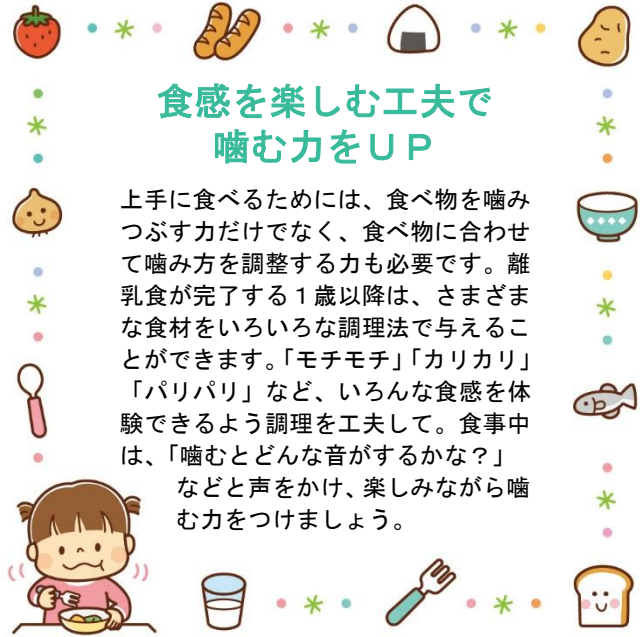 食感を楽しむ工夫で
噛む力をＵＰ
上手に食べるためには、食べ物を噛み
つぶす力だけでなく、食べ物に合わせ
て噛み方を調整する力も必要です。離
乳食が完了する１歳以降は、さまざま
な食材をいろいろな調理法で与えるこ
とができます。「モチモチ」「カリカリ」
「パリパリ」など、いろんな食感を体
験できるよう調理を工夫して。食事中
は、「噛むとどんな音がするかな？」
などと声をかけ、楽しみながら噛
む力をつけましょう。